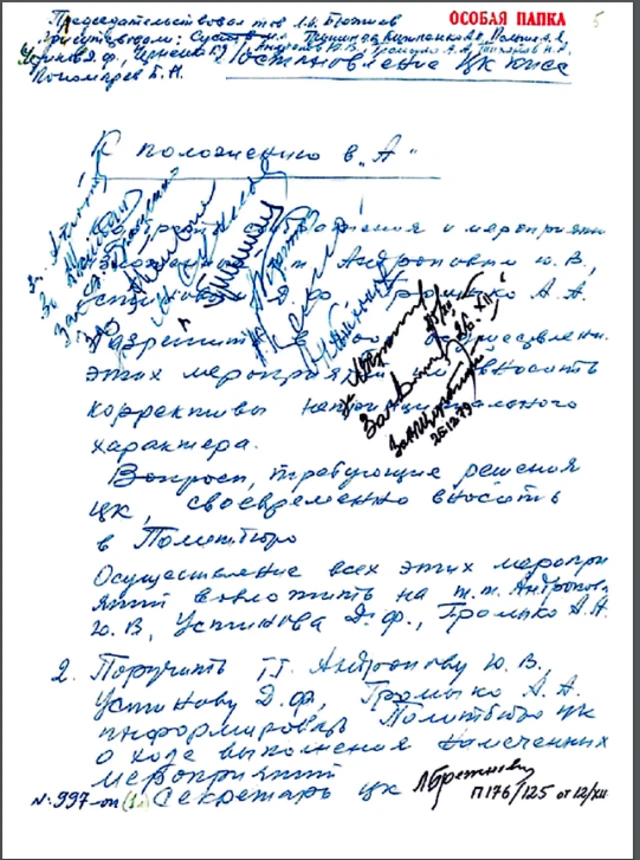 ОСОБАЯ ПАПКА
5
Председательствовал тов. Л.И. Брежнев
Присутствовали: Суслов М.А., Гришин В.В., Кириленко А.П., Пельше А.Я.,
Устинов Д.Ф., Черненко К.У., Андропов Ю.В., Громыко А.А., Тихонов Н.А.,
Пономарев Б.Н.
Постановление ЦК КПСС
К положению в "А"
1. Одобрить соображения и мероприятия,
изложенные т.т. Андроповым Ю.В.,
Устиновым Д.Ф., Громыко А.А.
Разрешить в ходе осуществления
этих мероприятий им вносить
коррективы непринципиального
характера.
Вопросы, требующие решения
ЦК, своевременно вносить
в Политбюро
Осуществление всех этих мероприятий
возложить на т.т. Андропова
Ю.В., Устинова Д.Ф., Громыко А.А.
25/XII
26.XII
26.12.79
2. Поручить т.т. Андропову Ю.В.,
Устинову Д.Ф., Громыко А.А.
информировать Политбюро ЦК
о ходе выполнения намеченных
мероприятий
Секретарь ЦК Л. Брежнев
№ 997-оп (1л)
П 176/125 от 12/XII